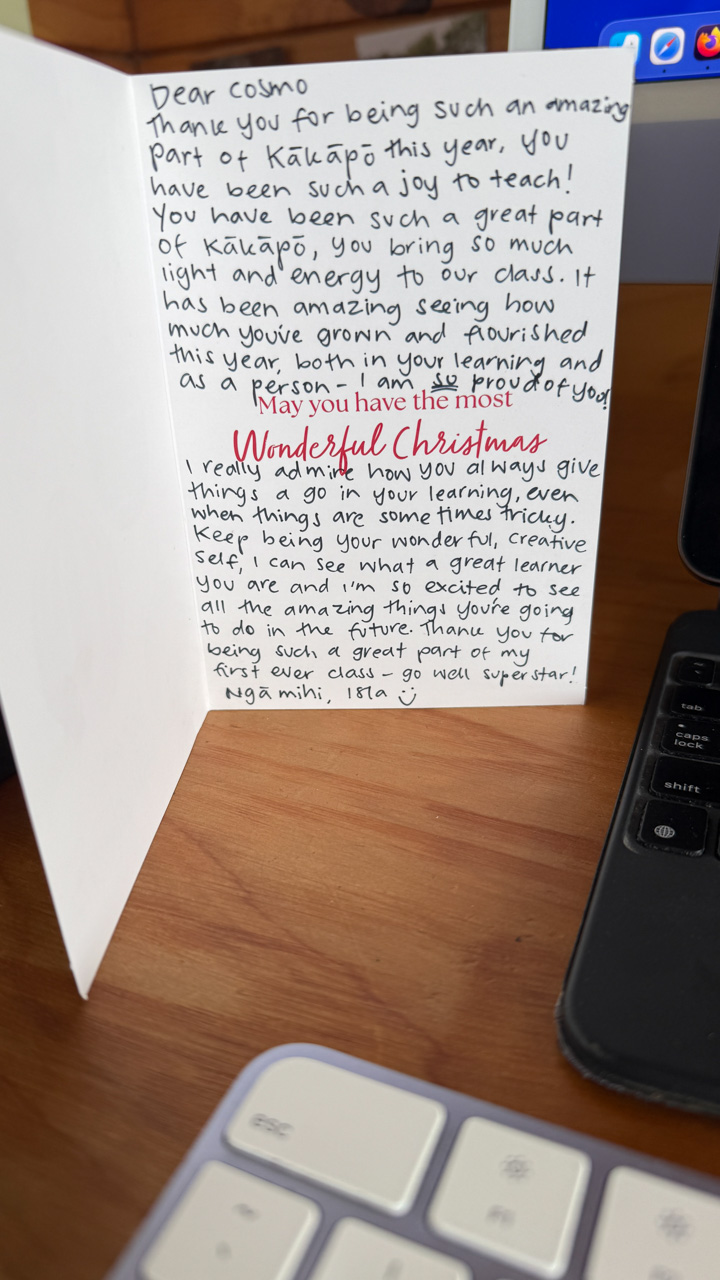 Dear Cosmo
Thank you for being such an amazing
part of Kākāpō this year, you
have been such a joy to teach!
You have been such a great part
of Kākāpō, you bring so much
light and energy to our class. It
has been amazing seeing how
much you've grown and flourished
this year, both in your learning and
as a person - I am so proud of you!
May you have the most
Wonderful Christmas
I really admire how you always give
things a go in your learning, even
when things are sometimes tricky.
Keep being your wonderful, creative
self, I can see what a great learner
you are and I'm so excited to see
all the amazing things you're going
to do in the future. Thank you for
being such a great part of my
first ever class - go well superstar!
Ngā mihi, Isla
tab
caps
lock
shift
esc
F1